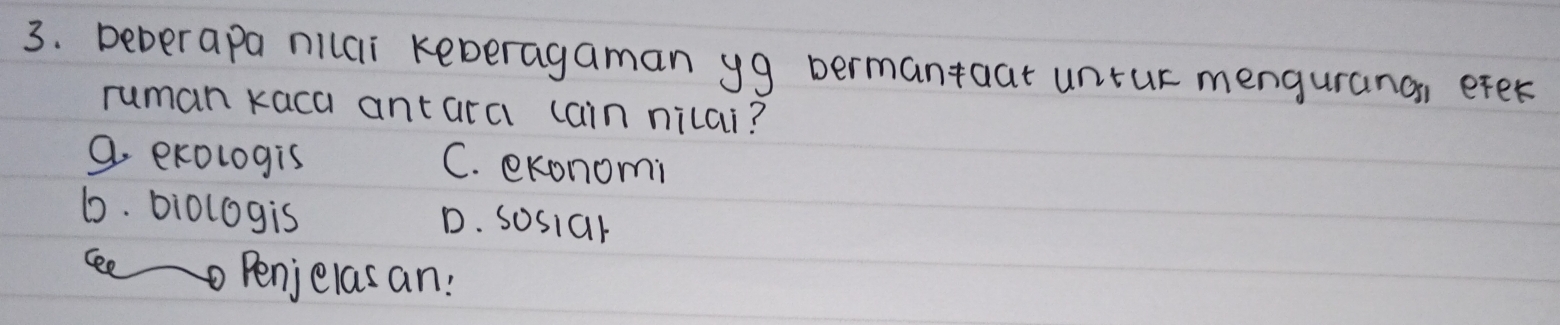 3. beberapa nilai keberagaman yg bermanfaat untuk mengurangi efek
rumah kaca antara lain nilai?
a. ekologis C. ekonomi
b. biologis D. sosial
Penjelasan: